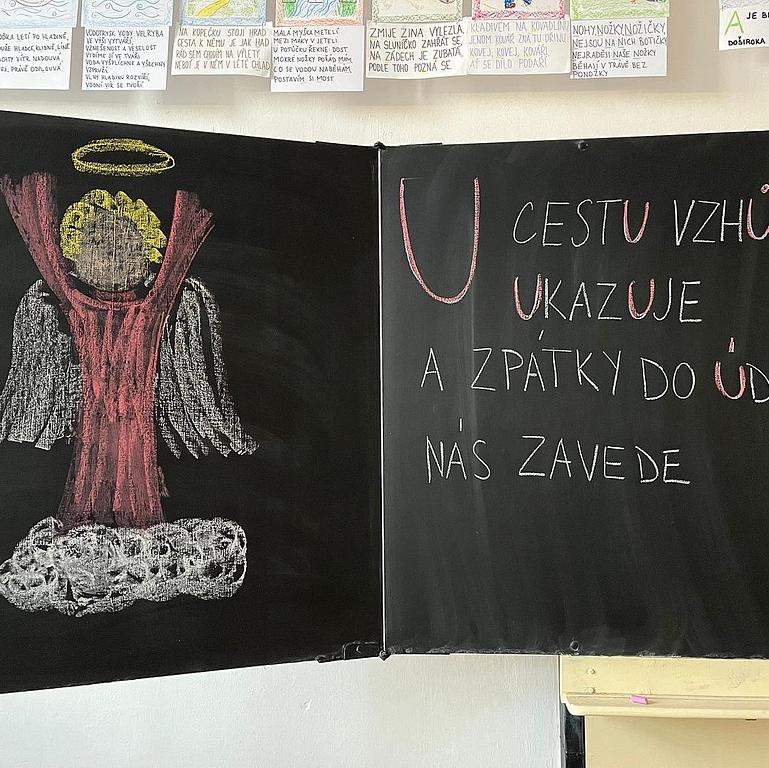 HLADINĚ,
PRÁVĚ ODPLOUVÁ.
VODOTRYSK VODY VELRYBA
VE VÝŠI VYTVÁŘÍ.
VZNEŠENOST A VESELOST
VIDÍME JÍ VE TVÁŘI.
VODA VYŠPLÍCHNE A VŠECHNY
VZPRUŽÍ
VLNY HLADINU ROZVÍŘÍ,
VODNÍ VÍR SE TVOŘÍ.
NA KOPEČKU STOJÍ HRAD
CESTA K NĚMU JE JAK HAD
RÁD SEM CHODÍM NA VÝLETY
NEBOŤ JE V NĚM V LÉTĚ CHLAD
MALÁ MYŠKA METELÍ
MEZI MÁKY V JETELI.
U POTŮČKU ŘEKNE: DOST
MOKRÉ NOŽKY POŘÁD MÁM,
CO SE VODOU NABĚHÁM,
POSTAVÍM SI MOST
ZMIJE ZINA VYLEZLA,
NA SLUNÍČKO ZAHŘÁT SE,
NA ZÁDECH JE ZUBATÁ,
PODLE TOHO POZNÁ SE.
KLADIVEM NA KOVADLINU
JENOM KOVÁŘ ZNÁ TU DŘINU.
KOVEJ, KOVEJ, KOVÁŘI,
AŤ SE DÍLO PODAŘÍ
NOHY, NOŽKY, NOŽIČKY,
NEJSOU NA NICH BOTIČKY,
NEJRADĚJI NAŠE NOŽKY
BĚHAJÍ V TRÁVĚ BEZ
PONOŽKY
A JE
DOŠIROKA
U CESTU VZHŮ
UKAZUJE
A ZPÁTKY DO ÚD
NÁS ZAVEDE